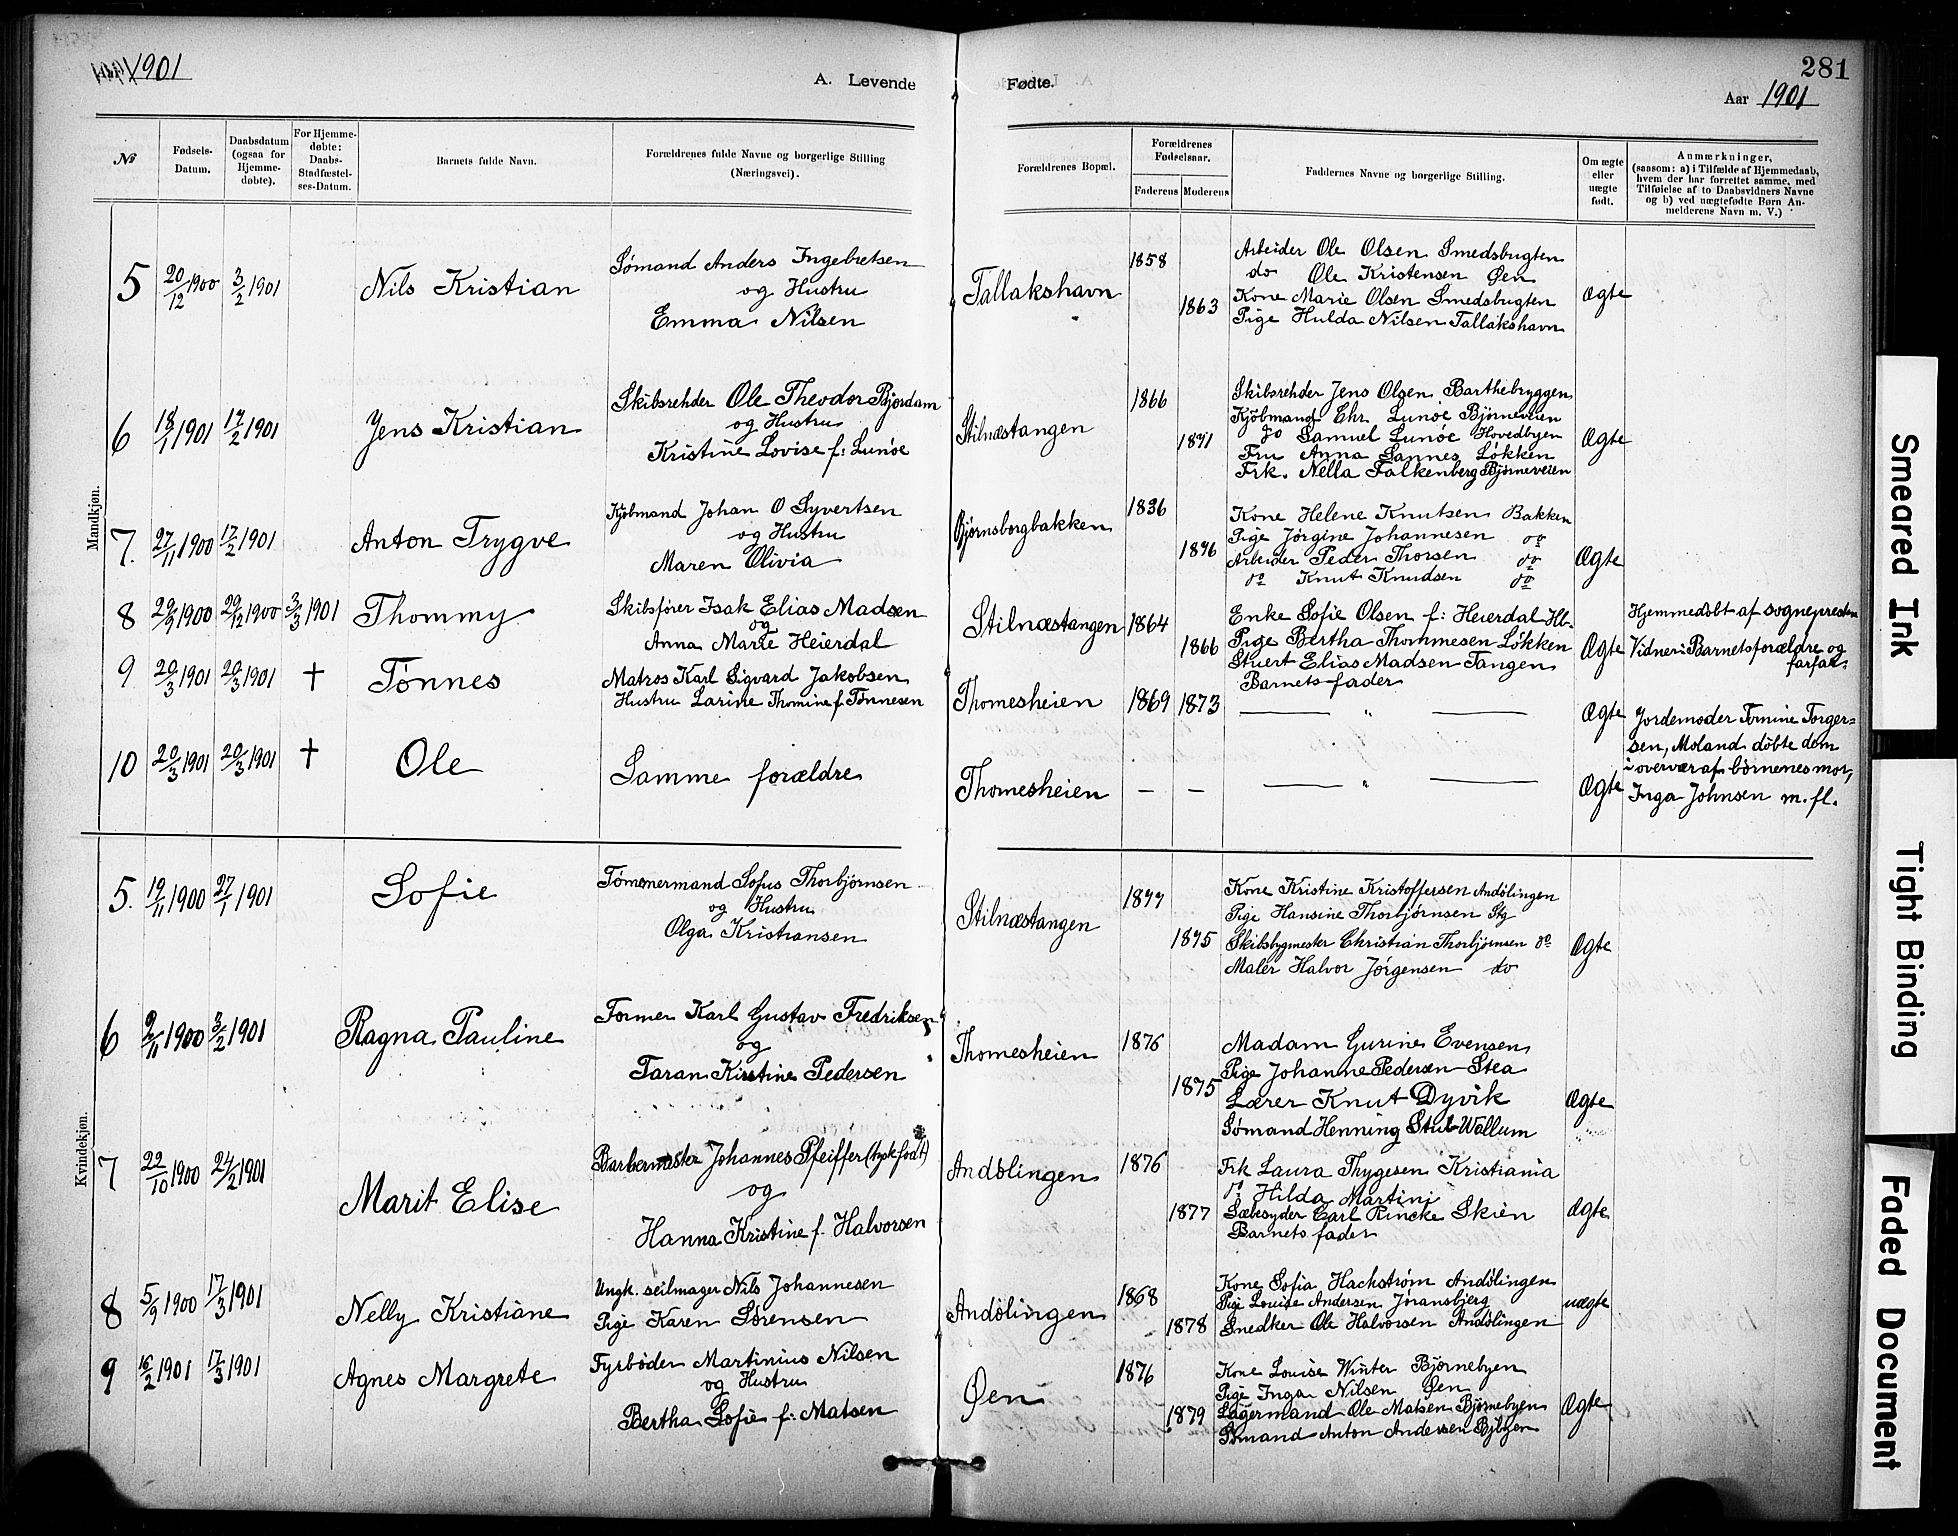 1901
A. Levende
Fødte.
281
Aar 1901
№
Fødsels-Datum.
Daabsdatum (ogsaa for Hjemme-døbte).
For Hjemme-døbte: Daabs-Stadfæstel-ses-Datum.
Barnets fulde Navn.
Forældrenes fulde Navne og borgerlige Stilling
(Næringsvei).
Forældrenes Bopæl.
Forældrenes Fødselsaar.
Faderens Moderens
Faddernes Navne og borgerlige Stilling.
Om ægte eller uægte født.
Anmærkninger,
(saasom: a) i Tilfælde af Hjemmedaab,
hvem der har forrettet samme, med
Tilføielse af to Daabsvidners Navne
og b) ved uægtefødte Børn An-
melderens Navn m. V.)
Mandkjøn.
5 20/12 1900 3/2 1901 Nils Kristian
Sømand Anders Ingebretsen
og Hustru
Emma Nilsen
Tallakshavn 1858 1863
Arbeider Ole Olsen Smedsbugten
do Ole Kristensen Øen
Kone Marie Olsen Smedsbugten
Pige Hulda Nilsen Tallakshavn
Ægte
6 18/1 1901 17/2 1901 Jens Kristian
Skibsrehder Ole Theodor Bjordam
og Hustru
Kristine Lovise f: Lunöe
Stilnæstangen 1866 1871
Skibsrehder Jens Olsen Barthebryggen
Kjøbmand Chr. Lunöe Bjørneveien
do Samuel Lunöe Hovedbyen
Fru Anna Sannes Løkken
Frk. Nella Falkenberg Bjørneveien
Ægte
7. 27/11 1900 17/2 1901 Anton Trygve
Kjøbmand Johan O Syvertsen
og Hustru
Maren Olivia
Bjørnsborgbakken 1836 1876
Kone Helene Knutsen Bakken
Pige Jørgine Johannesen do
Arbeider Peder Thorsen do
do Knut Knudsen do
Ægte
8 29/9 1900 29/12 1900 3/3 1901 Thommy
Skibsfører Isak Elias Madsen
og
Anna Marie Heierdal
Stilnæstangen 1864 1866
Enke Sofie Olsen f: Heierdal Hb.
Pige Bertha Thommesen Løkken
Stuert Elias Madsen Tangen
Barnets fader
Ægte
Hjemmedøbt af sognepresten
Vidner: Barnets forældre og
farfar.
9 20/3 1901 20/3 1901 † Tönnes
Matros Karl Sigvard Jakobsen
Hustru Larine Thomine f. Tønnesen
Thomesheien 1869 1873
— " —
Ægte
Jordemoder Tomine Torger=
sen, Moland døbte dem
i overvær af börnenes mor,
Inga Johnsen m. fl.
10 20/3 1901 20/3 1901 † Ole
Samme forældre
Thomesheien — —
— " —
Ægte
Kvindekjøn.
5. 19/11 1900 27/1 1901 Sofie
Tømmermand Sofus Thorbjørnsen
og Hustru
Olga Kristiansen
Stilnæstangen 1877 1875
Kone Kristine Kristoffersen Andölingen
Pige Hansine Thorbjørnsen Stg
Skibsbygmester Christian Thorbjørnsen do
Maler Halvor Jörgensen do
Ægte
6 9/11 1900 3/2 1901 Ragna Pauline
Former Karl Gustav Fredriksen
og
Taran Kirstine Pedersen
Thomesheien 1876 1875
Madam Gurine Evensen
Pige Johanne Pedersen Stea
Lærer Knut Dyvik
Sømand Henning Stub Wallum
Ægte
7 22/10 1900 24/2 1901
Marit Elise
Barbermester Johannes Pfeiffer (tyskfødt)
og
Hanna Kristine f. Halvorsen
Andölingen 1876 1877
Frk Laura Thygesen Kristiania
do Hilda Martini
Sæbesyder Carl Rincke Skien
Barnets fader
Ægte
8 5/9 1900 17/3 1901 Nelly Kristiane
Ungk. seilmager Nils Johannesen
Pige Karen Sørensen
Andölingen 1868 1878
Kone Sofia Hachstrøm Andölingen
Pige Louise Andersen Jöransbjerg
Snedker Ole Halvorsen Andölingen
uægte
9 16/2 1901 17/3 1901 Agnes Margrete
Fyrbøder Martinius Nilsen
og Hustru
Bertha Sofie f: Matsen
Øen 1876 1879
Kone Louise Winter Bjørnebyen
Pige Inga Nilsen Øen
Lagermand Ole Matsen Bjørnebyen
Sømand Anton Andersen Bjbyen
Ægte
Smeared Ink
Tight Binding
Faded Document